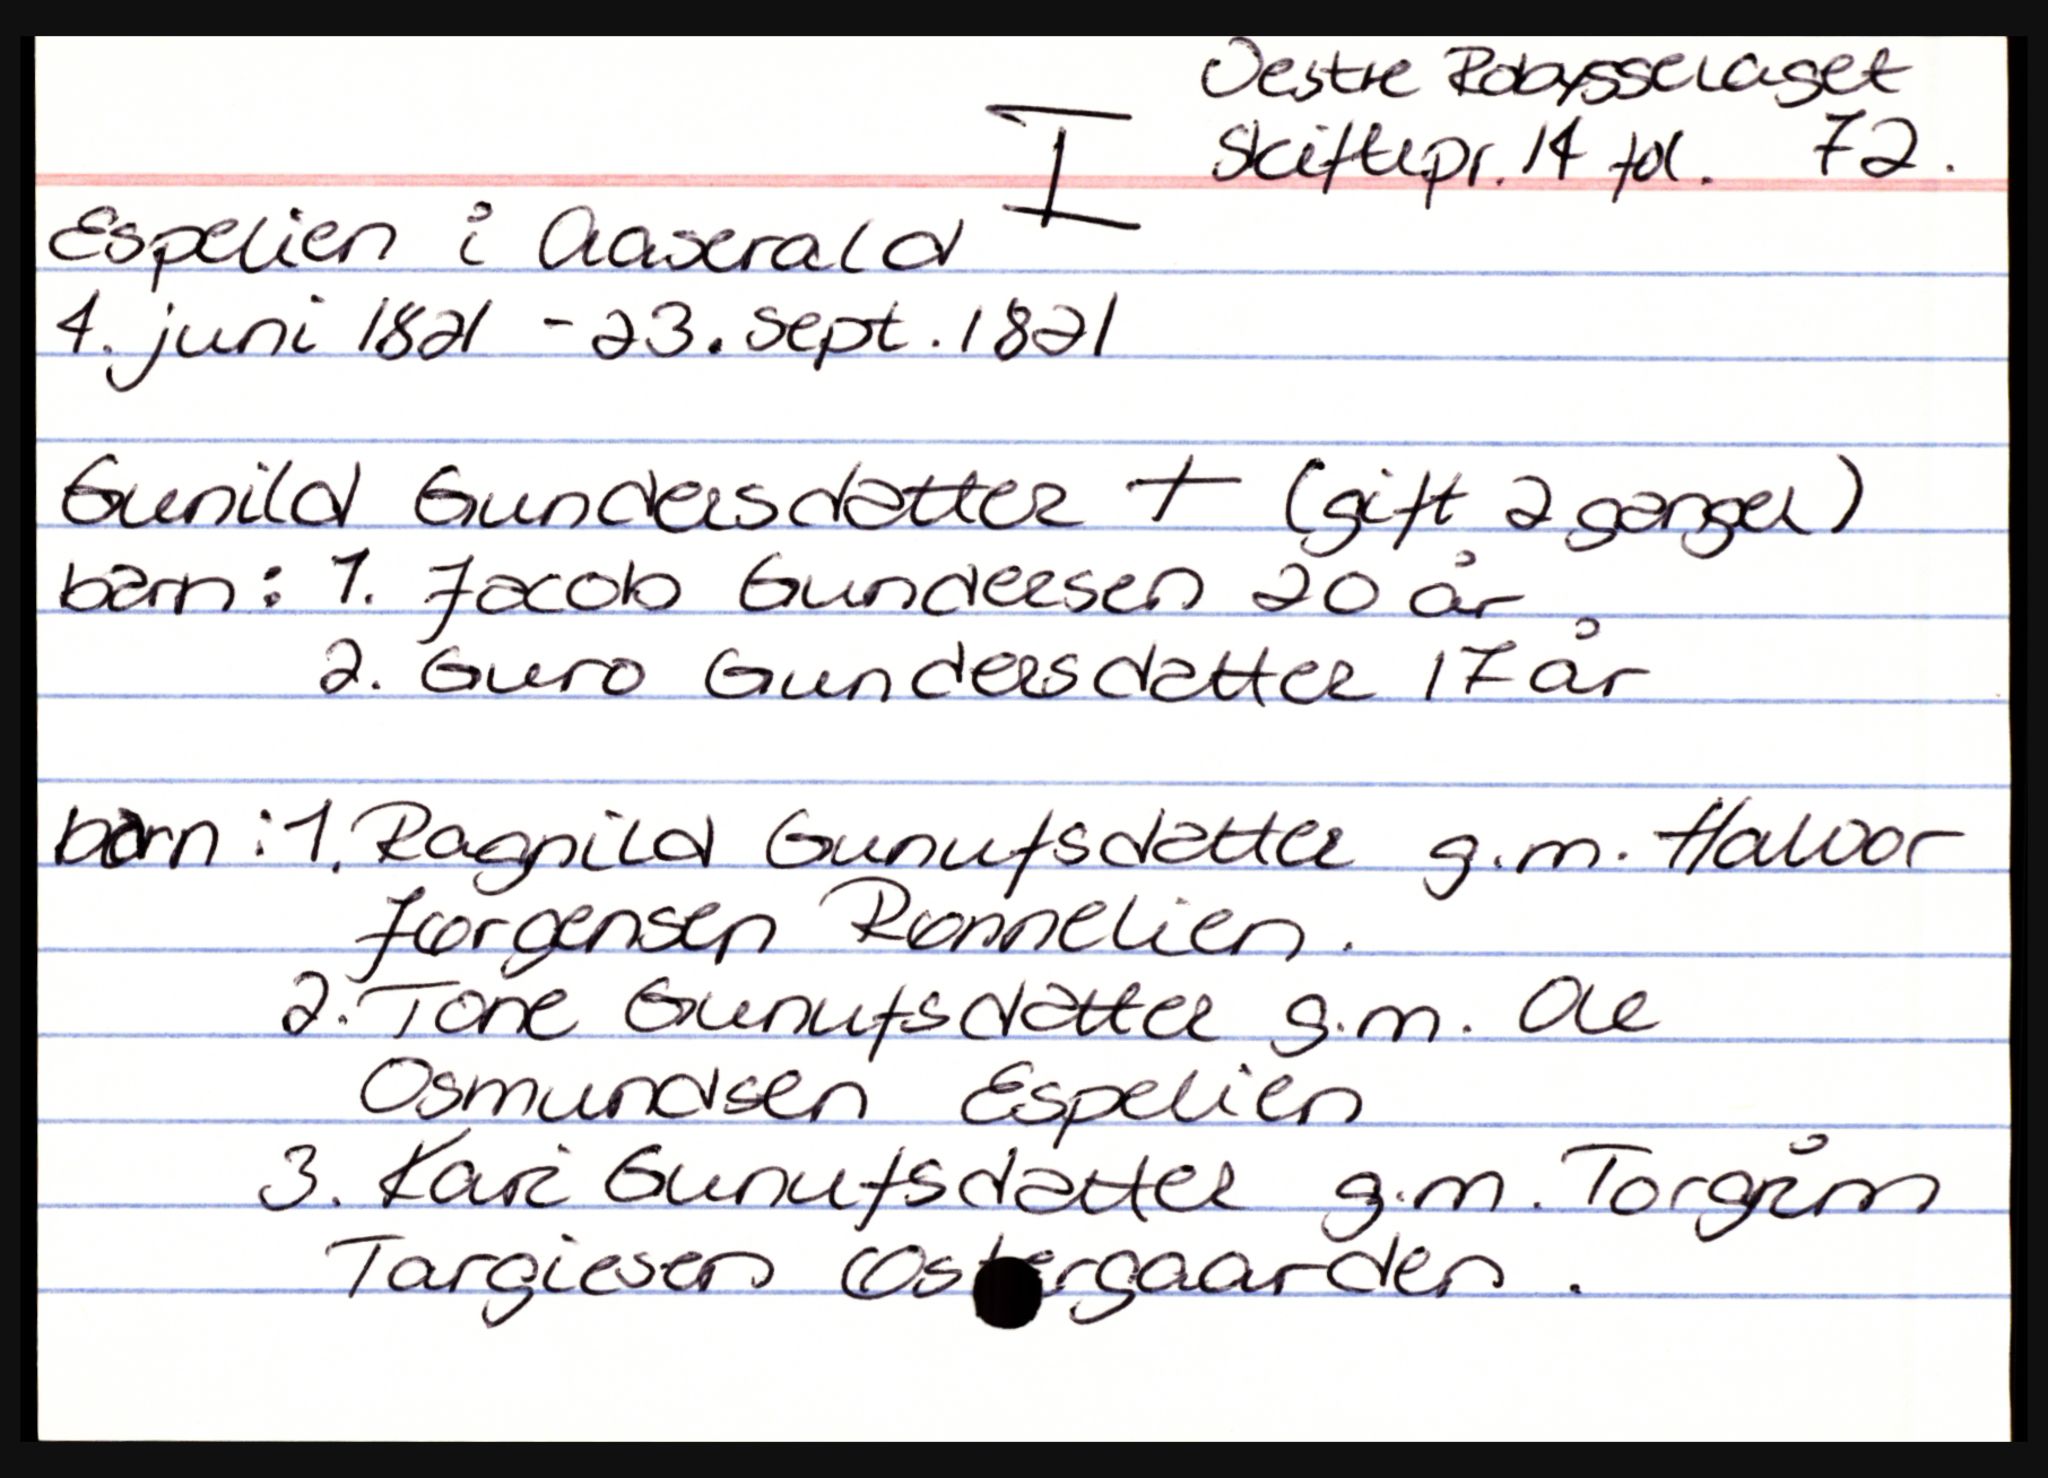 Vestre Robyggelaget
Skiftepr. 14 fol. 72.
I
Espelien i Aaserald
4. juni 1821 - 23. sept. 1821
Gunild Gundersdatter + (gift 2 ganger)
barn: 1. Jacob Gundersen 20 år
2. Guro Gundersdatter 17 år
barn: 1. Ragnild Gunufsdatter g.m. Halvor
Jørgensen Rønnelien.
2. Tone Gunufsdatter g.m. Ole
Osmundsen Espelien
3. Kari Gunufsdatter g.m. Torgrim
Targiesen Østergaarden.